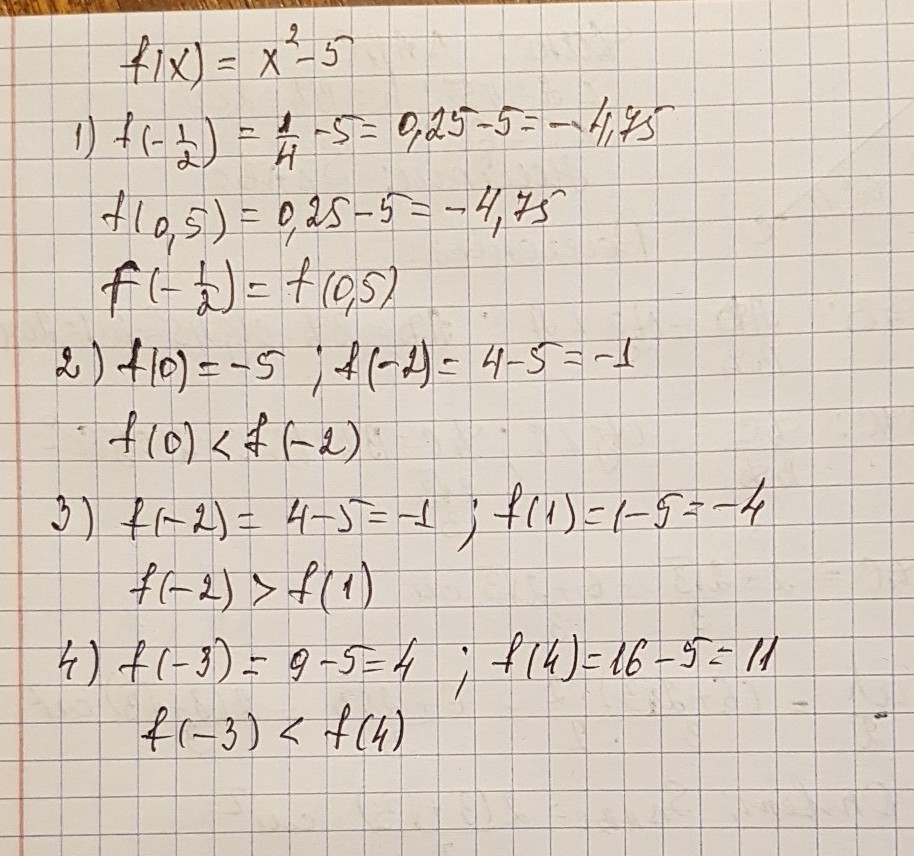 f(x) = x² - 5
1) f(-1/2) = 1/4 - 5 = 0,25 - 5 = - 4,75
f(0,5) = 0,25 - 5 = - 4,75
f(-1/2) = f(0,5)
2) f(0) = -5 ; f(-2) = 4 - 5 = -1
f(0) < f(-2)
3) f(-2) = 4 - 5 = -1 ; f(1) = 1 - 5 = -4
f(-2) > f(1)
4) f(-3) = 9 - 5 = 4 ; f(4) = 16 - 5 = 11
f(-3) < f(4)